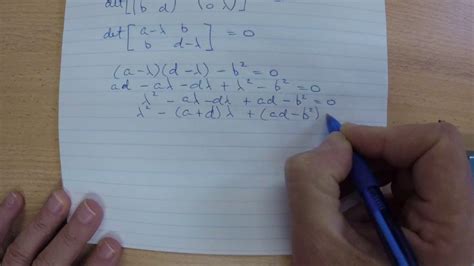 det[(b d) (0 λ)]
det[a-λ b
b d-λ] = 0
(a-λ)(d-λ) - b² = 0
ad - aλ - dλ + λ² - b² = 0
λ² - aλ - dλ + ad - b² = 0
λ² - (a+d)λ + (ad-b²)